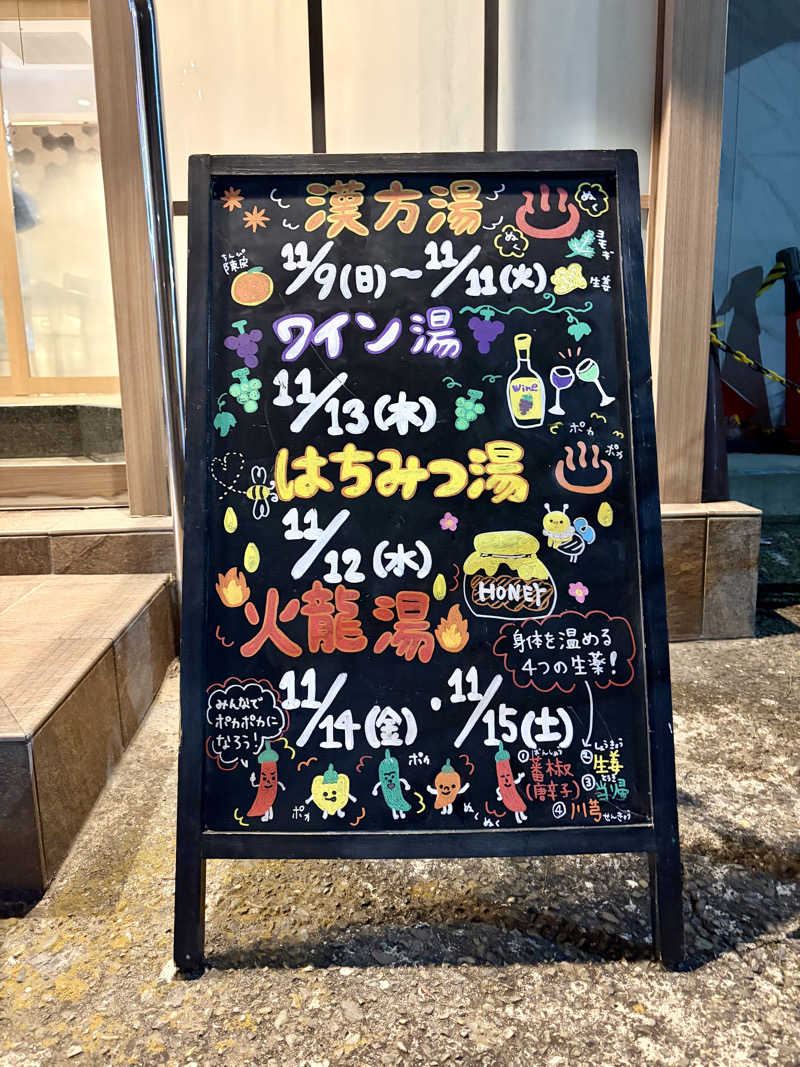 漢方湯
ぬく
ぬく
ヨモギ
ちんぴ
陳皮
生姜
11/9(日)〜11/11(火)
ワイン湯
Wine
11/13(木)
ポカ
ポカ
はちみつ湯
11/12(水)
HONEY
火龍湯
身体を温める
4つの生薬!
11/14(金)・11/15(土)
みんなで
ポカポカに
なろう!
ポカ
ポカ
ぬく
ぬく
①蕃椒
(唐辛子)
②しょうきょう
生姜
③とうき
当帰
④川芎せんきゅう